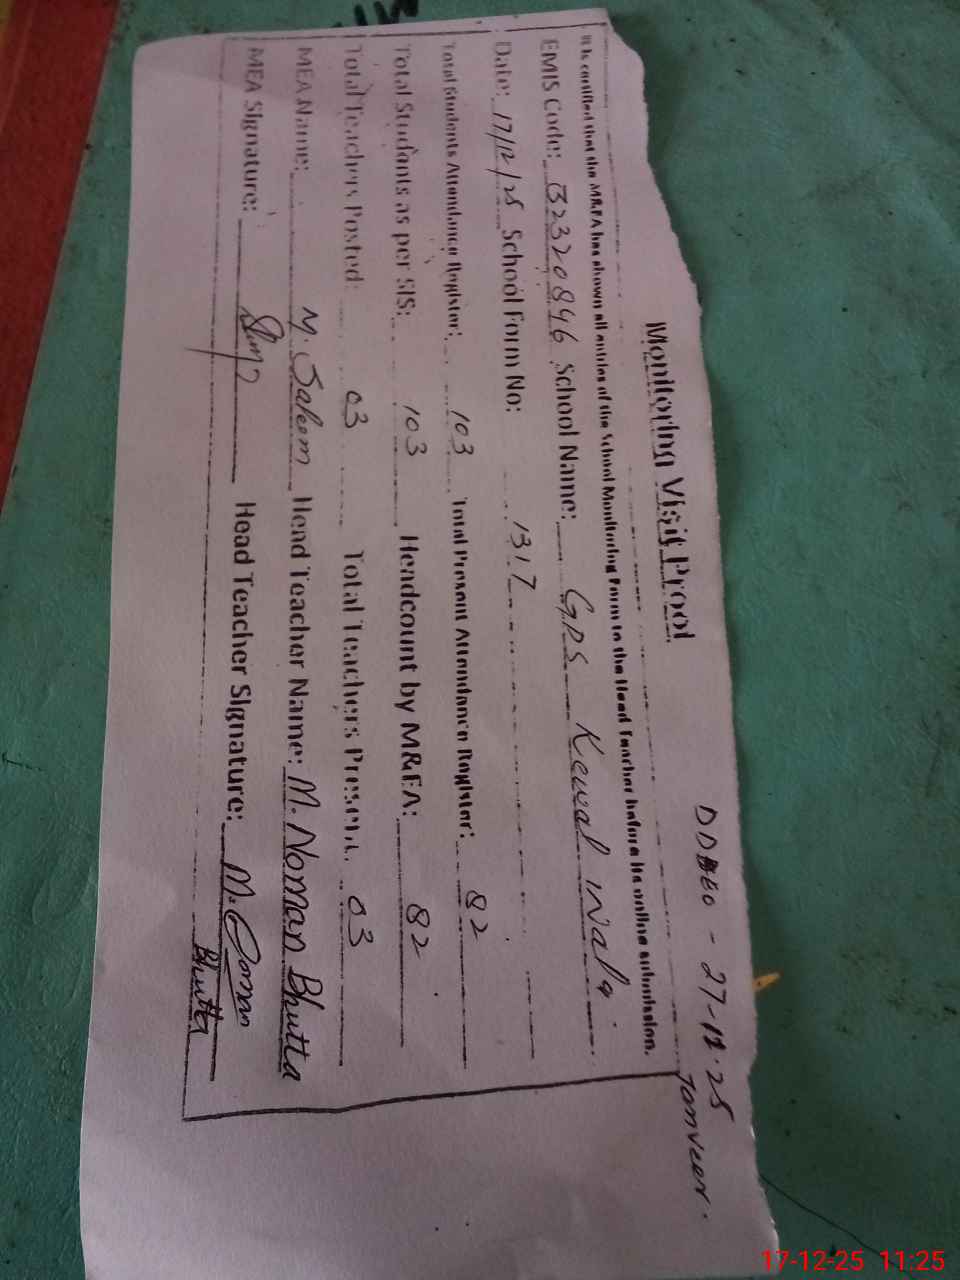 DDEO - 27-11-25
Tanveer.
Monitoring Visit Proof
It is certified that the M&EA has shown all entries of the School Monitoring Form to the Head Teacher before its online submission.
EMIS Code: 32320846 School Name: GPS Kewal Wala
Date: 17/12/25 School Form No: 1317
Total Students Attendance Register: 103 Total Present Attendance Register: 82
Total Students as per SIS: 103 Headcount by M&EA: 82
Total Teachers Posted: 03 Total Teachers Present: 03
MEA Name: M. Saleem Head Teacher Name: M. Noman Bhutta
MEA Signature: Head Teacher Signature: M. Noman
Bhutta
17-12-25 11:25